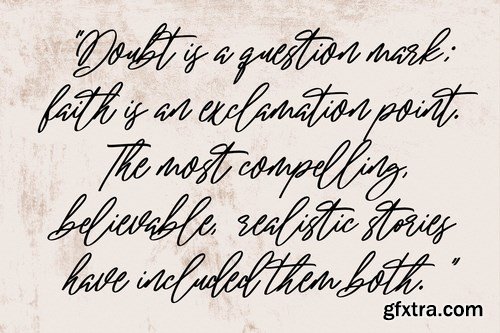 "Doubt is a question mark;
faith is an exclamation point.
The most compelling,
believable, realistic stories
have included them both. "
gfxtra.com